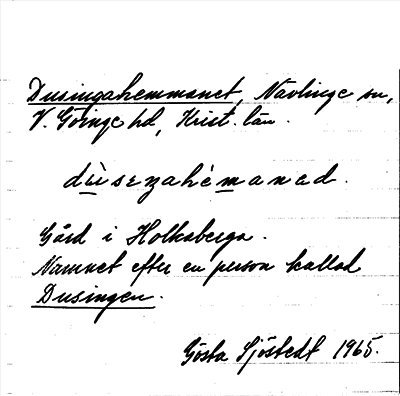 Dusingahemmanet, Nävlinge sn,
V. Göinge hd, Krist. län.
dùsezahèmaned.
Gård i Holkaberga.
Namnet efter en person kallad
Dusingen.
Gösta Sjöstedt 1965.